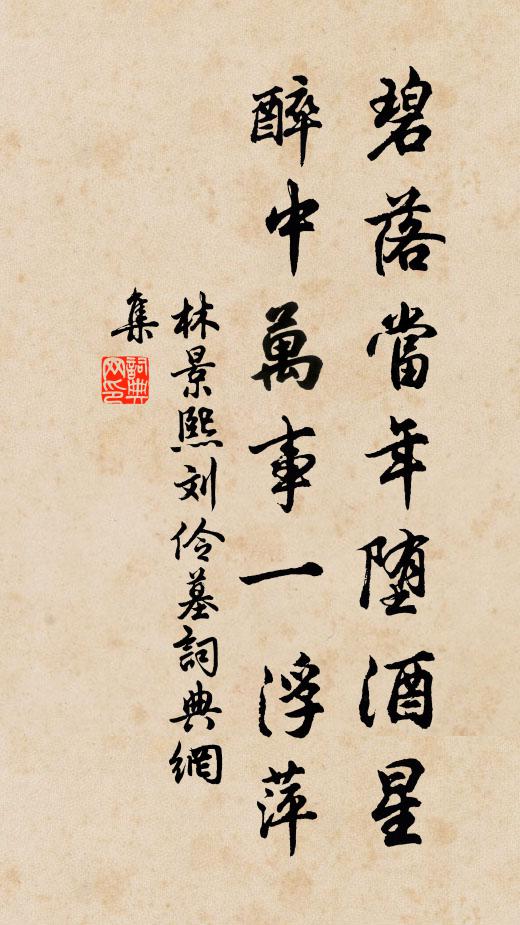 碧落當年堕酒星
醉中萬事一浮萍
林景熙刘伶墓詞典網
集
詞典
网印